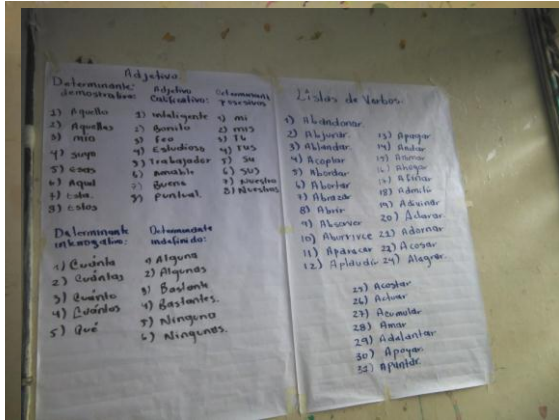 Adjetivo
Determinante demostrativo:
1) Aquello
2) Aquellas
3) mio
4) suyo
5) Esas
6) Aquel
7) Esta.
8) Estos
Adjetivo Calificativo:
1) Inteligente
2) Bonito
3) Feo
4) Estudioso
5) Trabajador
6) Amable
7) Bueno
8) Puntual.
Determinant posesivos
1) mi
2) mis
3) Tú
4) Tus
5) Su
6) Sus
7) Nuestro
8) Nuestros
Determinante interrogativo:
1) Cuánta
2) Cuántas
3) Cuánto
4) Cuántos
5) Qué
Determinante indefinido:
1) Alguna
2) Algunas
3) Bastante
4) Bastantes.
5) Ninguno
6) Ningunos.
Listas de Verbos.
1) Abandonar.
2) Abjurar.
3) Ablandar.
4) Acoplar
5) Abordar
6) Abortar
7) Abrazar
8) Abrir
9) Absorver
10) Aburrirce
11) Aparecer
12) Aplaudir
13) Apagar
14) Andar
15) Animar
16) Ahogar
17) Afinar
18) Admitir
19) Adivinar
20) Aclarar
21) Adornar
22) Acosar
24) Alegrar.
25) Acostar
26) Actuar
27) Acomular
28) Amar
29) Adelantar
30) Apoyar.
31) Apuntar.